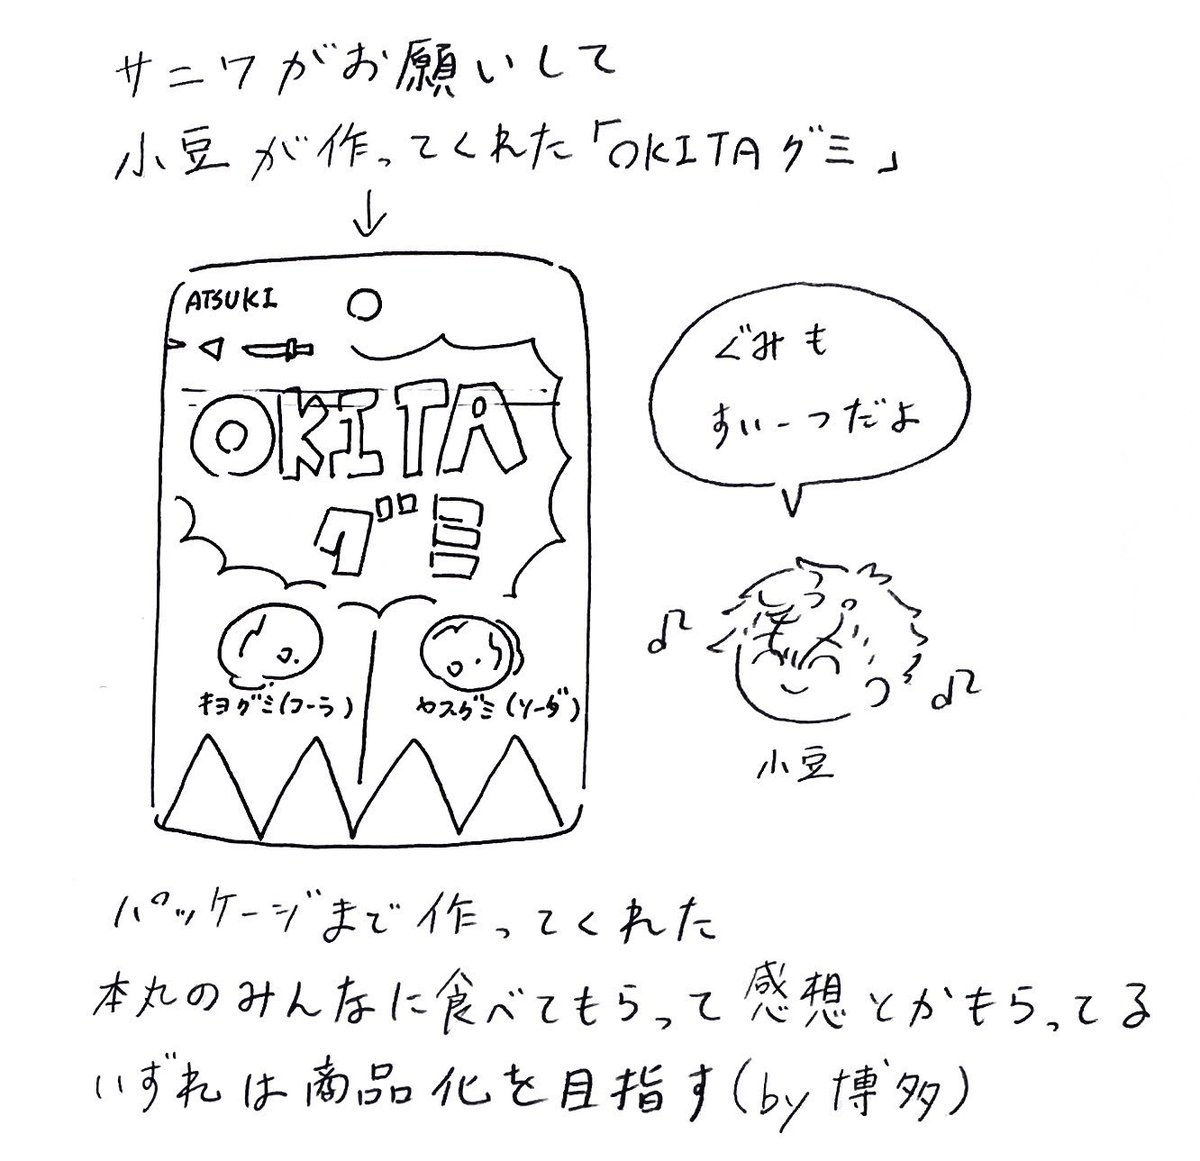 サニワがお願いして
小豆が作ってくれた「OKITAグミ」
↓
ATSUKI
OKITA
グミ
キヨグミ(コーラ)
ヤスグミ(ソーダ)
ぐみも
すいーつだよ
小豆
パッケージまで作ってくれた
本丸のみんなに食べてもらって感想とかもらってる
いずれは商品化を目指す(by博多)